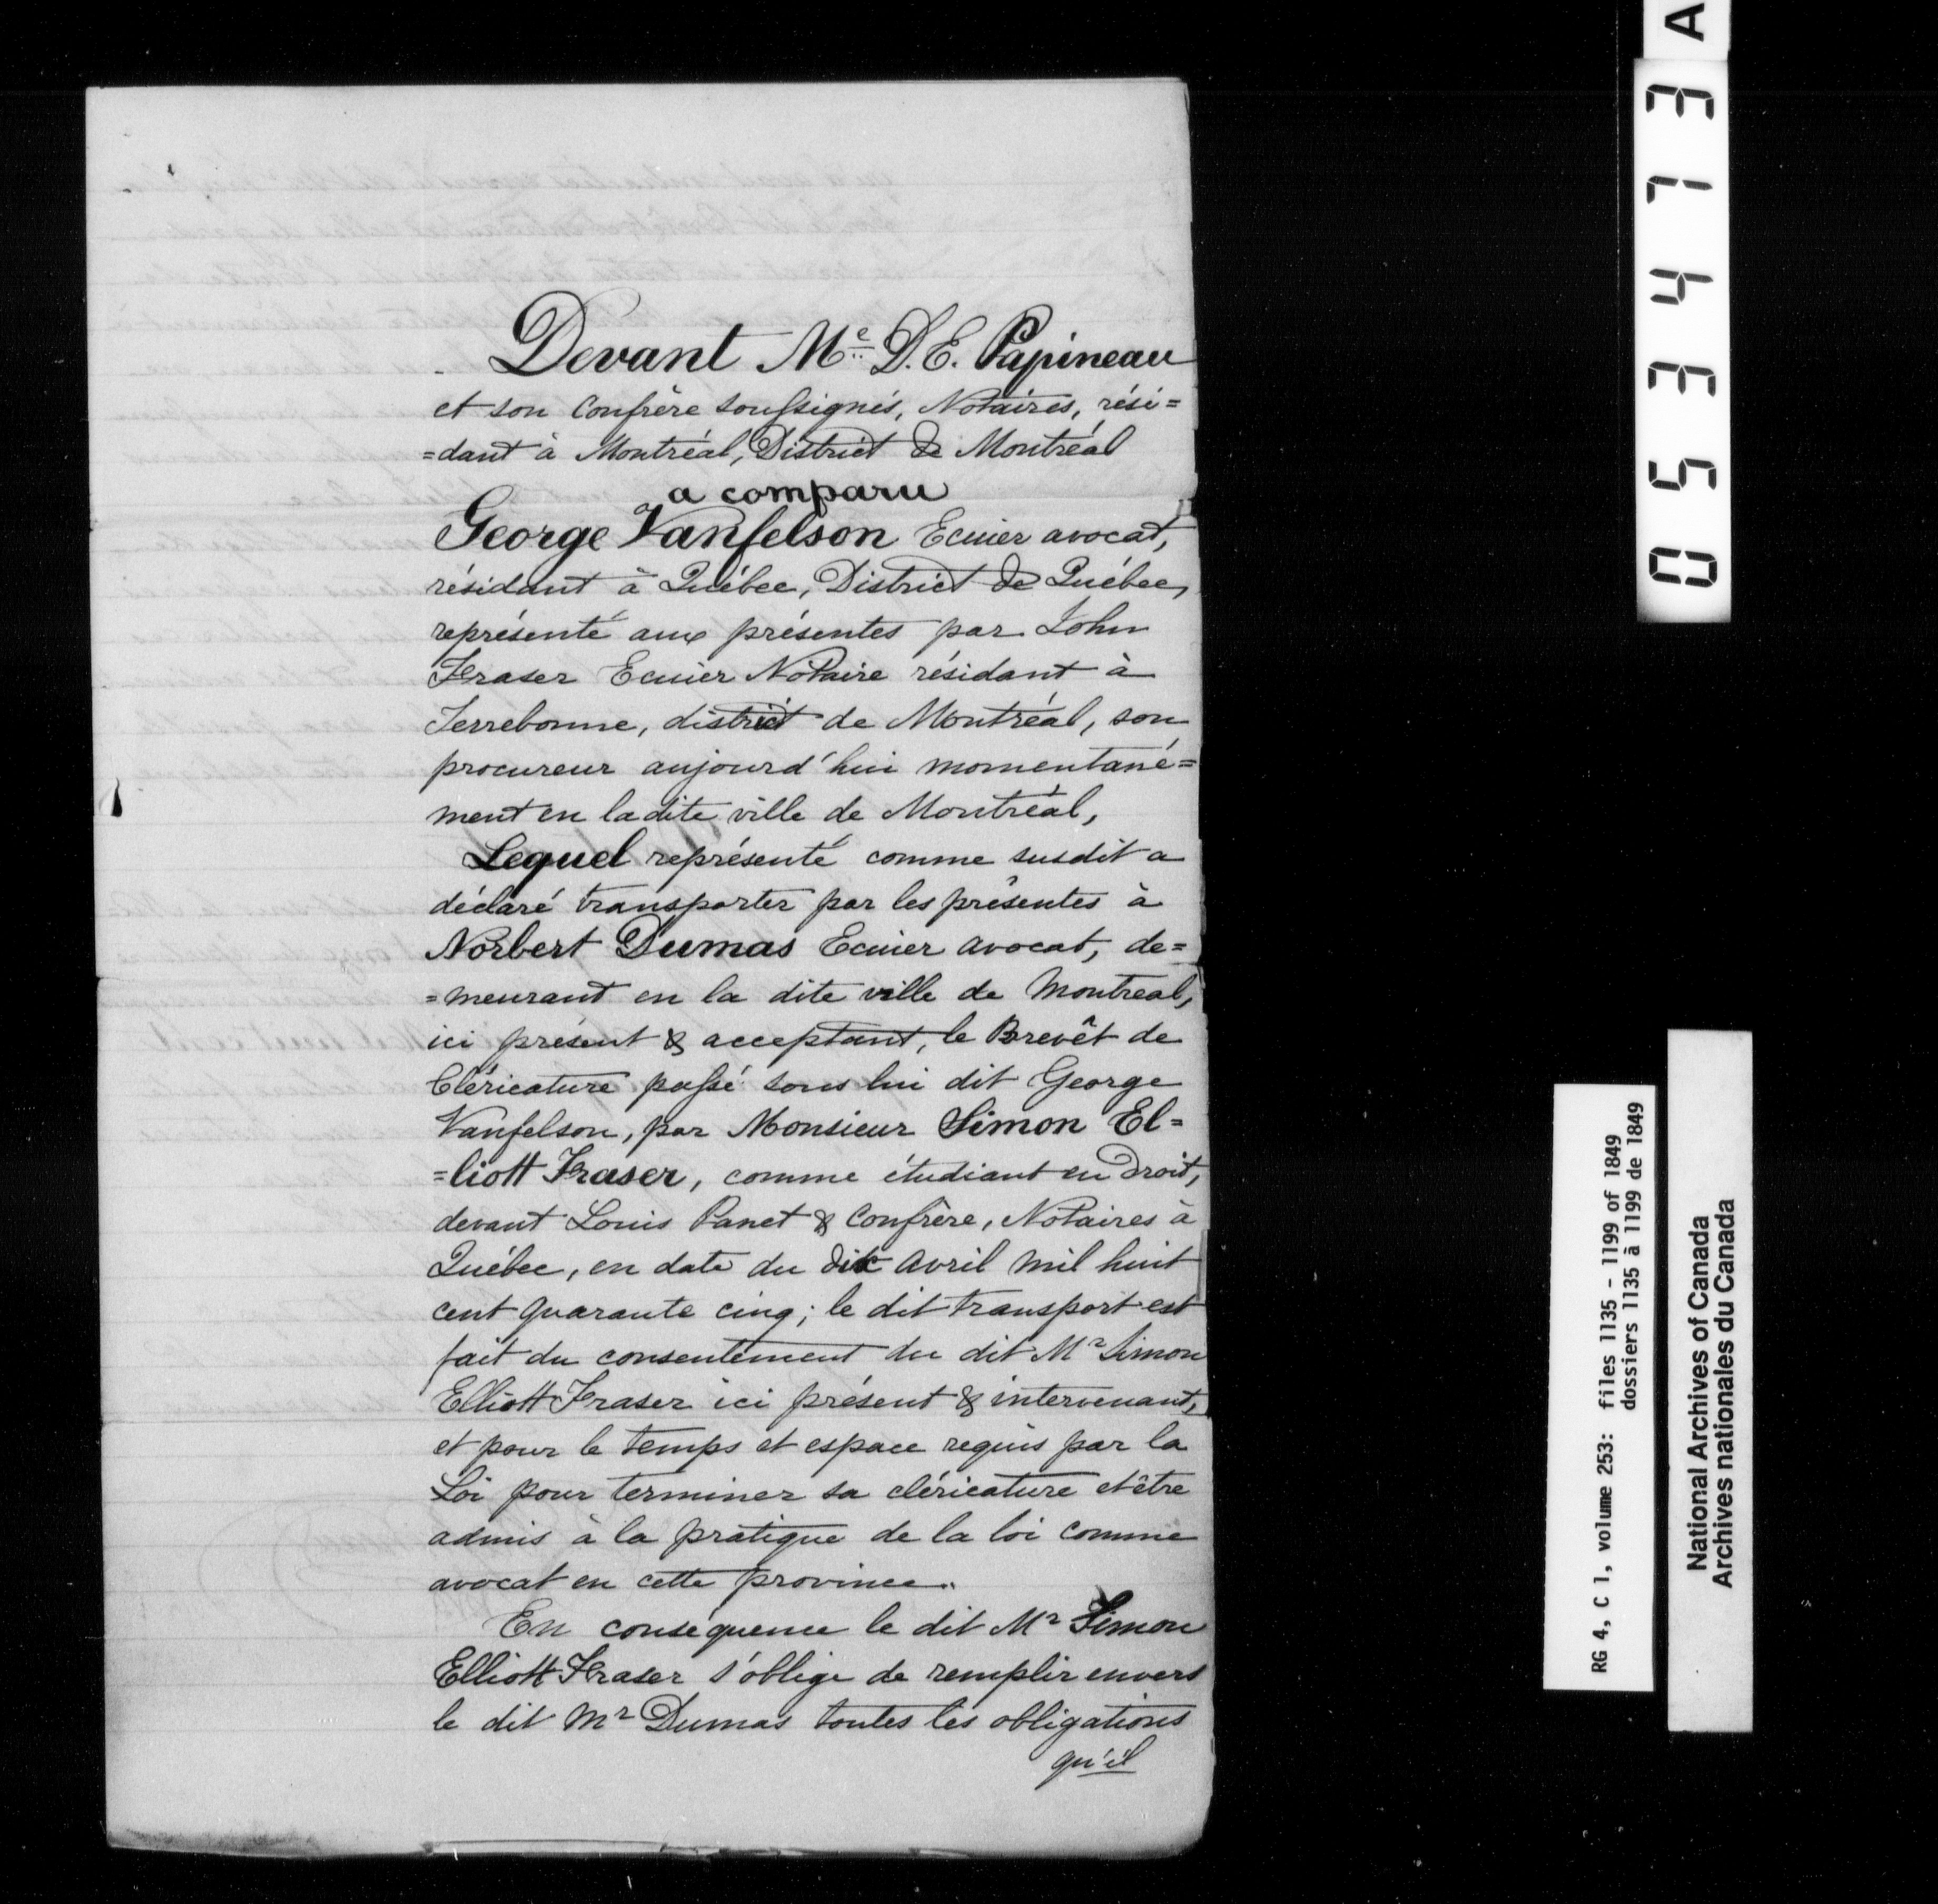 Devant Me D. E. Papineau
et son Confrère soussignés, Notaires, rési=
=dant à Montréal, District de Montréal
a comparu
George Vanfelson Ecuier avocat,
résidant à Québec, District de Québec,
représenté aux présentes par John
Fraser Ecuier Notaire résidant à
Terrebonne, district de Montréal, son
procureur aujourd'hui momentané=
ment en la dite ville de Montréal,
Lequel représenté comme susdit a
déclaré transporter par les présentes à
Norbert Dumas Ecuier avocat, de=
=meurant en la dite ville de Montreal,
ici présent & acceptant, le Brevêt de
Cléricature passé sous lui dit George
Vanfelson, par Monsieur Simon El=
=liott Fraser, comme étudiant en Droit,
devant Louis Panet & Confrère, Notaires à
Québec, en date du dix avril mil huit
cent quarante cinq; le dit transport est
fait du consentement du dit Mr Simon
Elliott Fraser ici présent & intervenant,
et pour le temps et espace requis par la
Loi pour terminer sa cléricature et être
admis à la pratique de la loi comme
avocat en cette province.
En conséquence le dit Mr Simon
Elliott Fraser s'oblige de remplir envers
le dit Mr Dumas toutes les obligations
qu'il
053473 A
RG 4, C 1, volume 253: files 1135 - 1199 of 1849
dossiers 1135 à 1199 de 1849
National Archives of Canada
Archives nationales du Canada